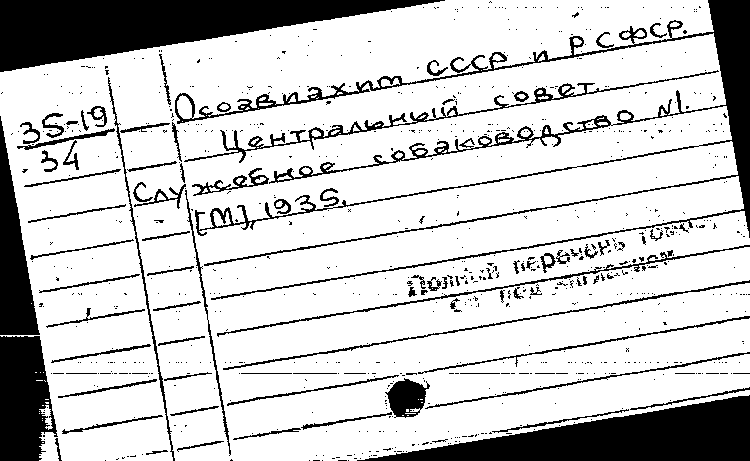 35-19
34
Осоавиахим СССР и РСФСР.
Центральный совет
Служебное собаководство №1.
[М.], 1935.
Полный перечень томов
см под заглавием